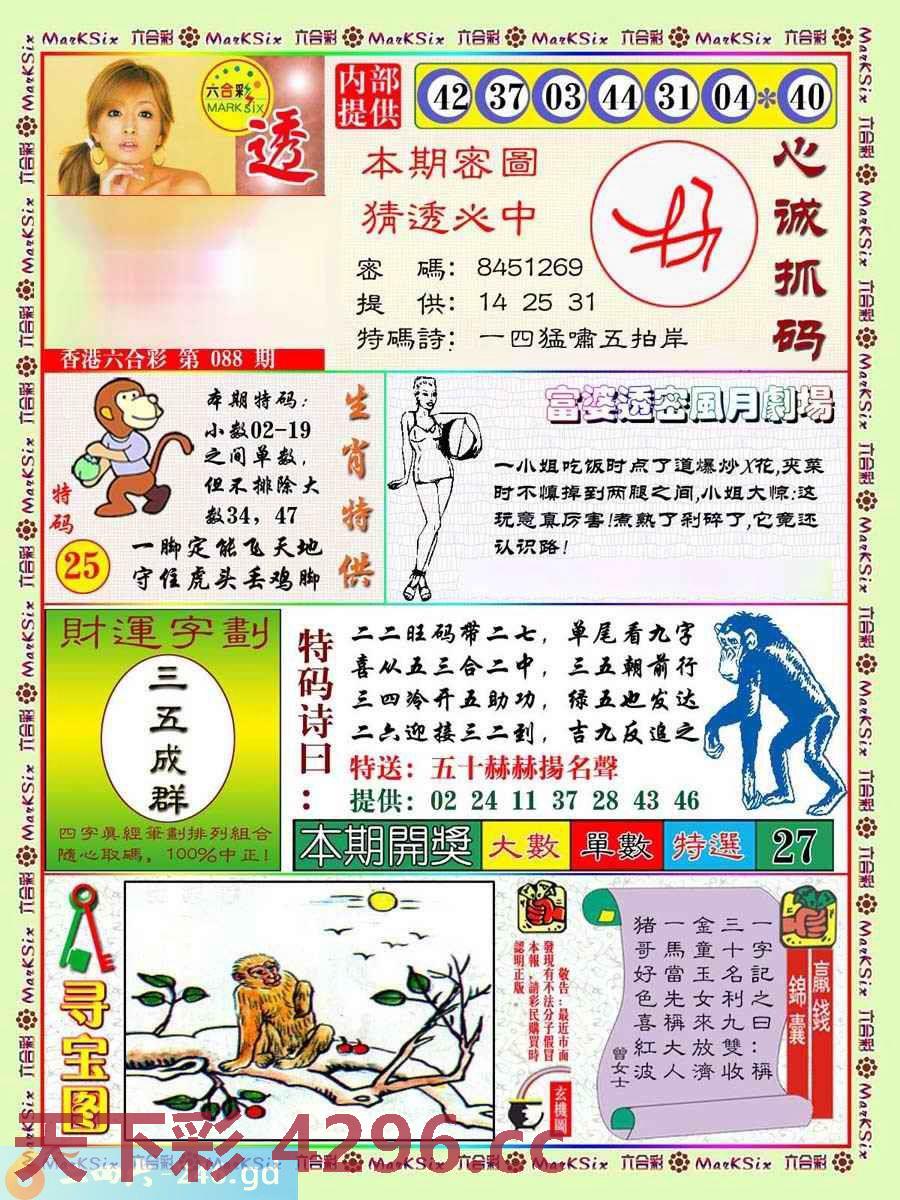 MarKSix 六合彩 MarKSix 六合彩 MarKSix 六合彩 MarKSix 六合彩 MarKSix 六合彩
六合彩
MARK SIX
透
内部
提供
42 37 03 44 31 04 * 40
本期密圖
猜透必中
密 碼: 8451269
提 供: 14 25 31
特碼詩: 一四猛嘯五拍岸
心诚抓码
香港六合彩 第 088 期
本期特码:
小数02-19
之间单数,
但不排除大
数34, 47
生肖特供
特码
25
一脚定能飞天地
守住虎头丢鸡脚
富婆透密風月劇場
一小姐吃饭时点了道爆炒X花,夹菜
时不慎掉到两腿之间,小姐大惊:这
玩意真厉害!煮熟了剁碎了,它竟还
认识路!
財運字劃
三五成群
四字眞經筆劃排列組合
隨心取碼, 100%中正!
特码诗曰:
二二旺码带二七, 单尾看九字
喜从五三合二中, 三五朝前行
三四冷开五助功, 绿五也发达
二六迎接三二到, 吉九反追之
特送: 五十赫赫揚名聲
提供: 02 24 11 37 28 43 46
本期開獎 大數 單數 特選 27
寻宝图
敬告:最近市面
發現有不法分子假冒
本報,請彩民購買時
認明正版。
玄機圖
贏錢
錦囊
一字記之曰:稱
三十名利九雙收
金童玉女來放濟
一馬當先稱大人
豬哥好色喜紅波
曾女士
天下彩 4296.cc
MarKSix 六合彩 MarKSix 六合彩 MarKSix 六合彩 MarKSix 六合彩